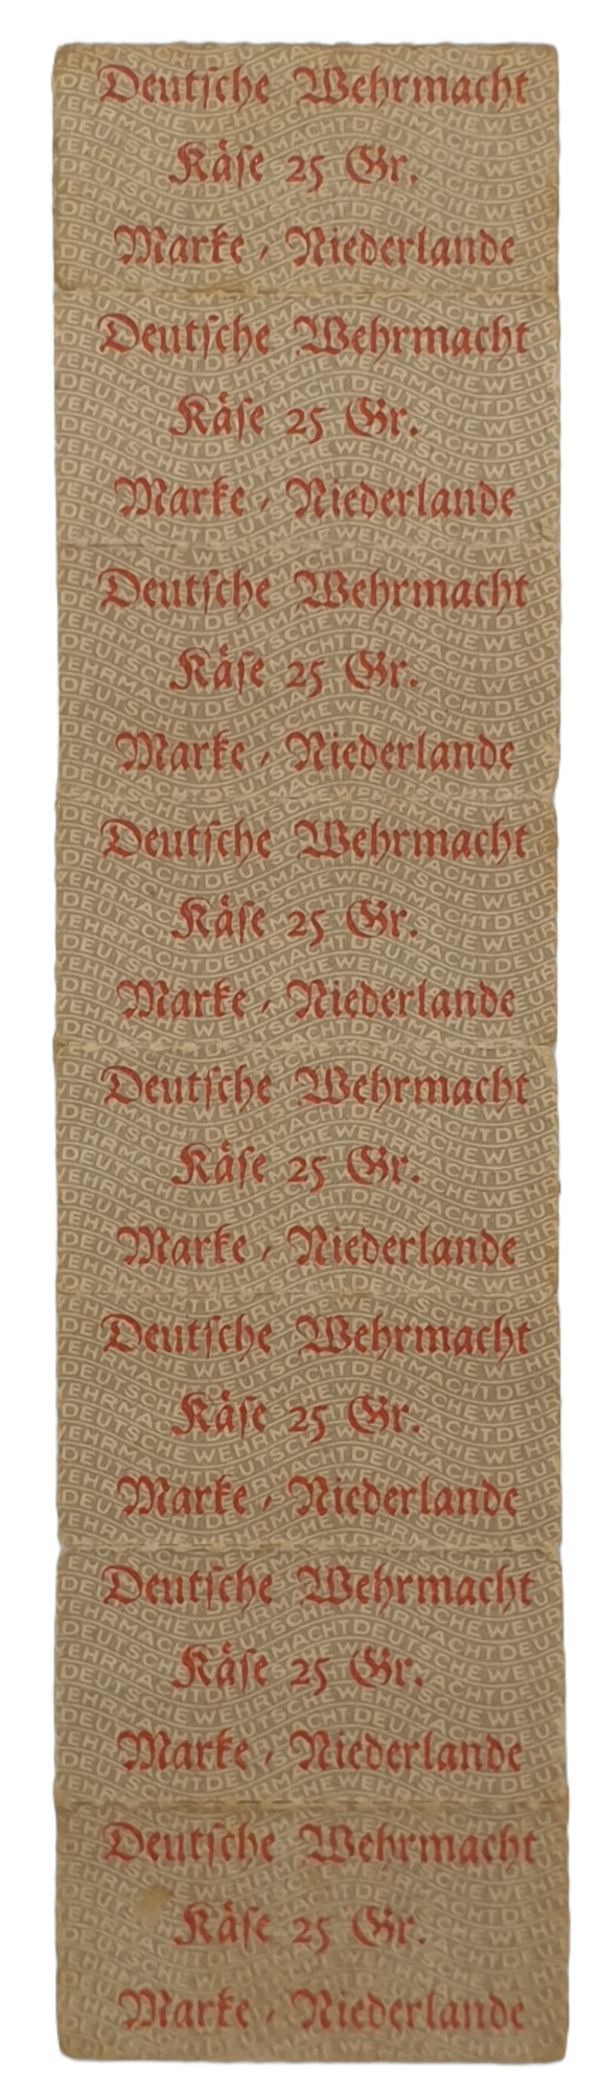 Deutſche Wehrmacht
Käſe 25 Gr.
Marke - Niederlande
Deutſche Wehrmacht
Käſe 25 Gr.
Marke - Niederlande
Deutſche Wehrmacht
Käſe 25 Gr.
Marke - Niederlande
Deutſche Wehrmacht
Käſe 25 Gr.
Marke - Niederlande
Deutſche Wehrmacht
Käſe 25 Gr.
Marke - Niederlande
Deutſche Wehrmacht
Käſe 25 Gr.
Marke - Niederlande
Deutſche Wehrmacht
Käſe 25 Gr.
Marke - Niederlande
Deutſche Wehrmacht
Käſe 25 Gr.
Marke - Niederlande